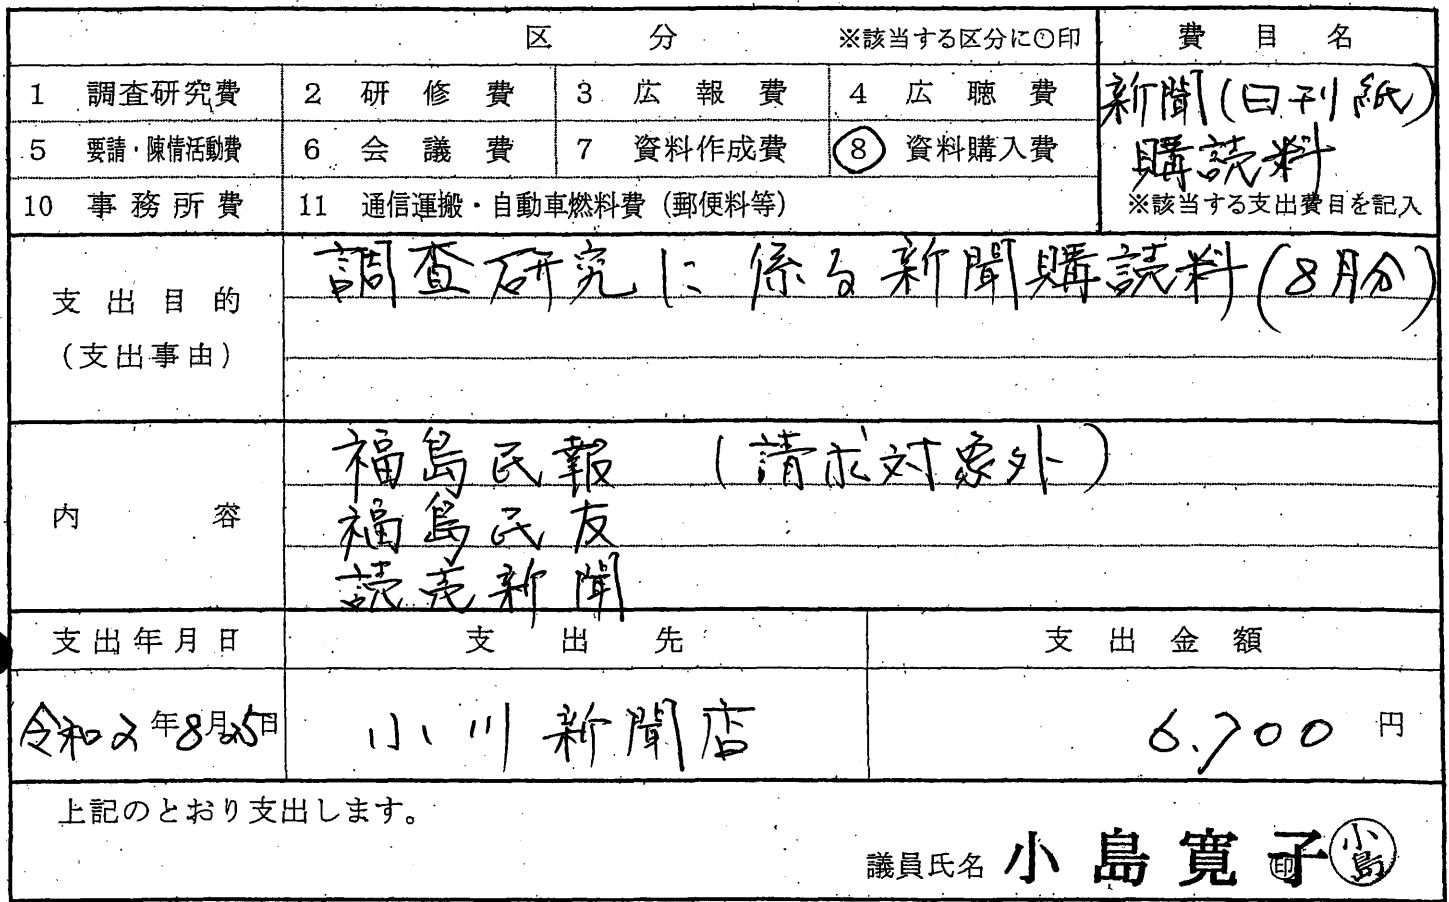 区 分 ※該当する区分に○印 費目名
1 調査研究費 2 研修費 3 広報費 4 広聴費 新聞(日刊紙)
5 要請・陳情活動費 6 会議費 7 資料作成費 8 資料購入費 購読料
10 事務所費 11 通信運搬・自動車燃料費(郵便料等) ※該当する支出費目を記入
調査研究に係る新聞購読料(8月分)
支出目的
(支出事由)
福島民報 (請求対象外)
内容 福島民友
読売新聞
支出年月日 支出先 支出金額
令和2年8月25日 小川新聞店 6,700円
上記のとおり支出します。
議員氏名 小島寛子 印 小島